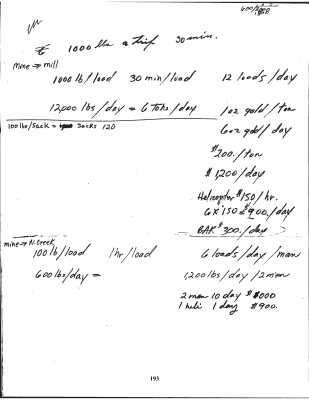 1000 lbs a trip 30 min.
mine → mill
1000 lb/load 30 min/load 12 loads/day
12,000 lbs/day = 6 tons/day 1oz gold/ton
100 lbs/Sack = Sacks 120 6oz gold/day
$200./ton
$1,200/day
Helicopter $150/hr.
6 x 150 = $900./day
BAK $300./day
mine → N. Creek
100 lb/load 1hr/load 6 loads/day/man
600 lbs/day = 1,200 lbs/day/2 men
2 men 10 day
1 heli 1 day $900.
193